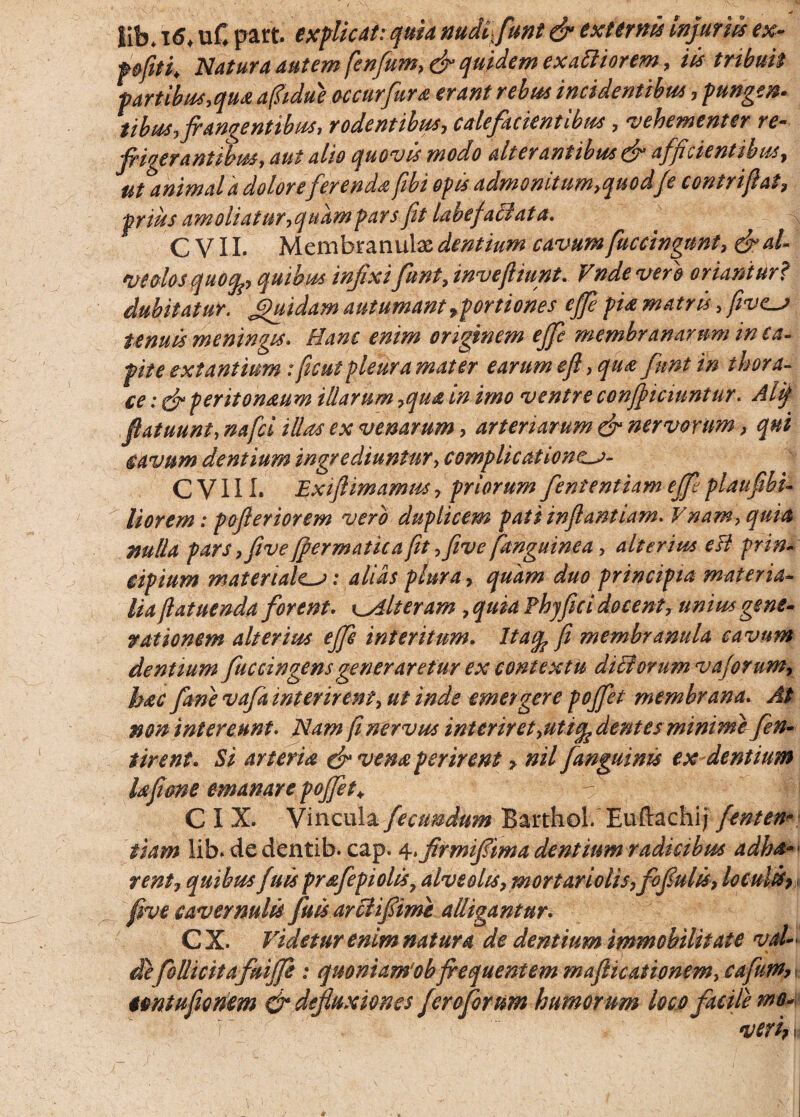 lib. 16. uſ. part. explicat: quia nudi ſunt & externis injuriis ex-
poſiti. Natura autem ſenſum, & quidem exactiorem, iis tribuit
partibus, quæ aßidue occurſuræ erant rebus incidentibus, pungen-
tibus, frangentibus, rodentibus, calefacientibus, vehementer re-
frigerantibus, aut alio quovis modo alterantibus & afficientibus,
ut animal à dolore ferendæ ſibi opis admonitum, quod ſe contriſtat,
prius amoliatur, quàm pars ſit labefactata.
CVII. Membranulæ dentium cavum ſuccingunt, & al-
veolos quoq;, quibus infixi ſunt, inveſtiunt. Unde verò oriantur?
dubitatur. Quidam autumant, portiones eſſe piæ matris, ſive
tenuis meningis. Hanc enim originem eſſe membranarum in ca-
pite extantium: ſicut pleura mater earum eſt, quæ ſunt in thora-
ce: & peritonæum illarum, quæ in imo ventre conſpiciuntur. Alij
ſtatuunt, naſci illas ex venarum, arteriarum & nervorum, qui
cavum dentium ingrediuntur, complicatione.
CVIII. Exiſtimamus, priorum ſententiam eſſe plauſibi-
liorem: poſteriorem verò duplicem pati inſtantiam. Vnam, quia
nulla pars, ſive ſpermatica ſit, ſive ſanguinea, alterius eſt prin-
cipium materiale: aliàs plura, quàm duo principia materia-
lia ſtatuenda forent. Alteram, quia Phyſici docent, unius gene-
rationem alterius eſſe interitum. Itaq; ſi membranula cavum
dentium ſuccingens generaretur ex contextu dictorum vaſorum,
hæc ſanè vaſa interirent, ut inde emergere poſſet membrana. At
non intereunt. Nam ſi nervus interiret, utiq; dentes minimè ſen-
tirent. Si arteriæ & venæ perirent, nil ſanguinis ex dentium
læſione emanare poſſet.
CIX. Vincula ſecundum Barthol. Euſtachij ſenten-
tiam lib. de dentib. cap. 4. firmißima dentium radicibus adhæ-
rent, quibus ſuis præſepiolis, alveolis, mortariolis, foßulis, loculis,
ſive cavernulis ſuis arctißimè alligantur.
CX. Videtur enim natura de dentium immobilitate val-
dè ſollicita fuiſſe: quoniam ob frequentem maſticationem, caſum,
contuſionem & defluxiones ſeroſorum humorum loco facilè mo-
veri,